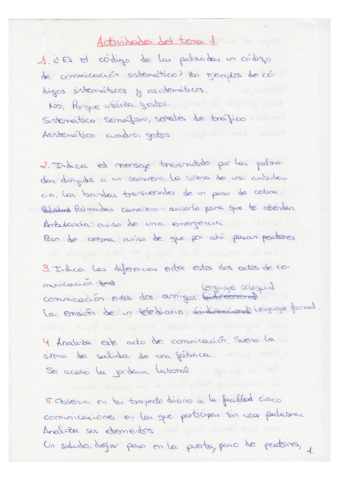 Actividades del tema 1
1. ¿Es el código de las palmadas un código
de comunicación sistemático? Pon ejemplos de có-
digos sistemáticos y asistemáticos.
No, Porque utiliza gestos.
Sistemático: semáforo, señales de tráfico
Asistemático: cuadro, gestos
2. Indica el mensaje transmitido por las palma-
das dirigidas a un camarero, la sirena de una ambulan-
cia, las bandas transversales de un paso de cebra.
Palmadas camarero: avisarlo para que te atienda.
Ambulancia: aviso de una emergencia.
Paso de cebra: aviso de que por ahí pasan peatones
3. Indica las diferencias entre estos dos actos de co-
municación
Lenguaje coloquial
comunicación entre dos amigos:
la emisión de un telediario. Lenguaje formal.
4. Analiza este acto de comunicación. Suena la
sirena de salida de una fábrica.
Se acaba la jornada laboral
5. Observa en tu trayecto diario a la facultad cinco
comunicaciones en las que participes sin usar palabras.
Analiza sus elementos
Un saludo, dejar paso en la puerta, paso de peatones,
1.